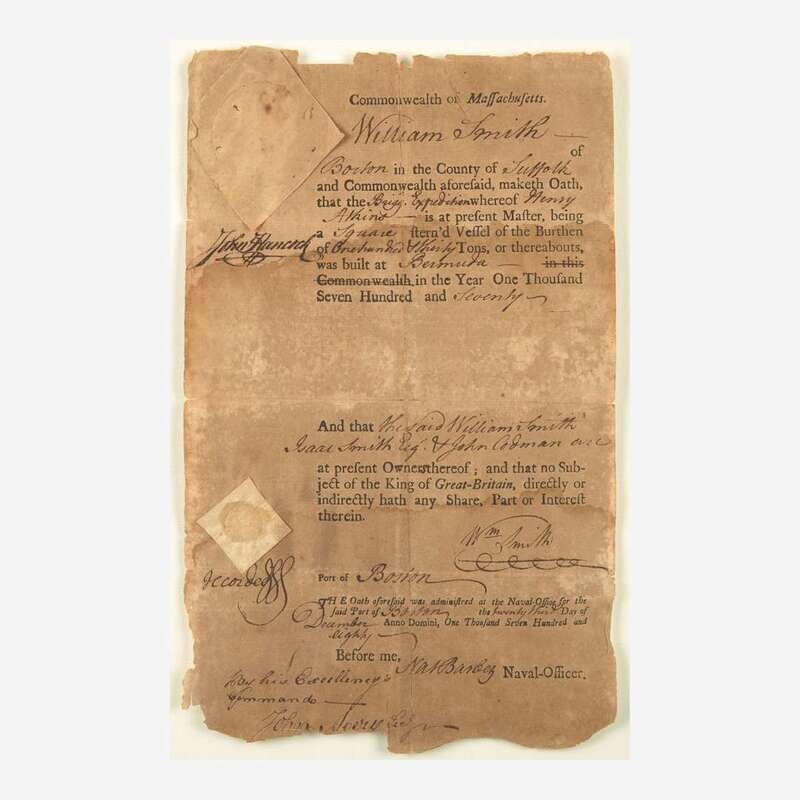 Commonwealth of Massachusetts.
William Smith
of
Boston in the County of Suffolk
and Commonwealth aforesaid, maketh Oath,
that the Brigg. Expedition whereof Henry
Atkins is at present Master, being
a Square stern'd Vessel of the Burthen
of One hundred & thirty Tons, or thereabouts,
was built at Bermuda in this
Commonwealth, in the Year One Thousand
Seven Hundred and Seventy
John Hancock
And that the said William Smith
Isaac Smith Esq. & John Codman are
at present Owners thereof; and that no Sub-
ject of the King of Great-Britain, directly or
indirectly hath any Share, Part or Interest
therein.
Wm Smith
Recorded
Port of Boston
THE Oath aforesaid was administred at the Naval-Office for the
said Port of Boston the twenty third Day of
December Anno Domini, One Thousand Seven Hundred and
eighty
Before me, Nat Barber Naval-Officer.
By his Excellency's
Command
John Avery